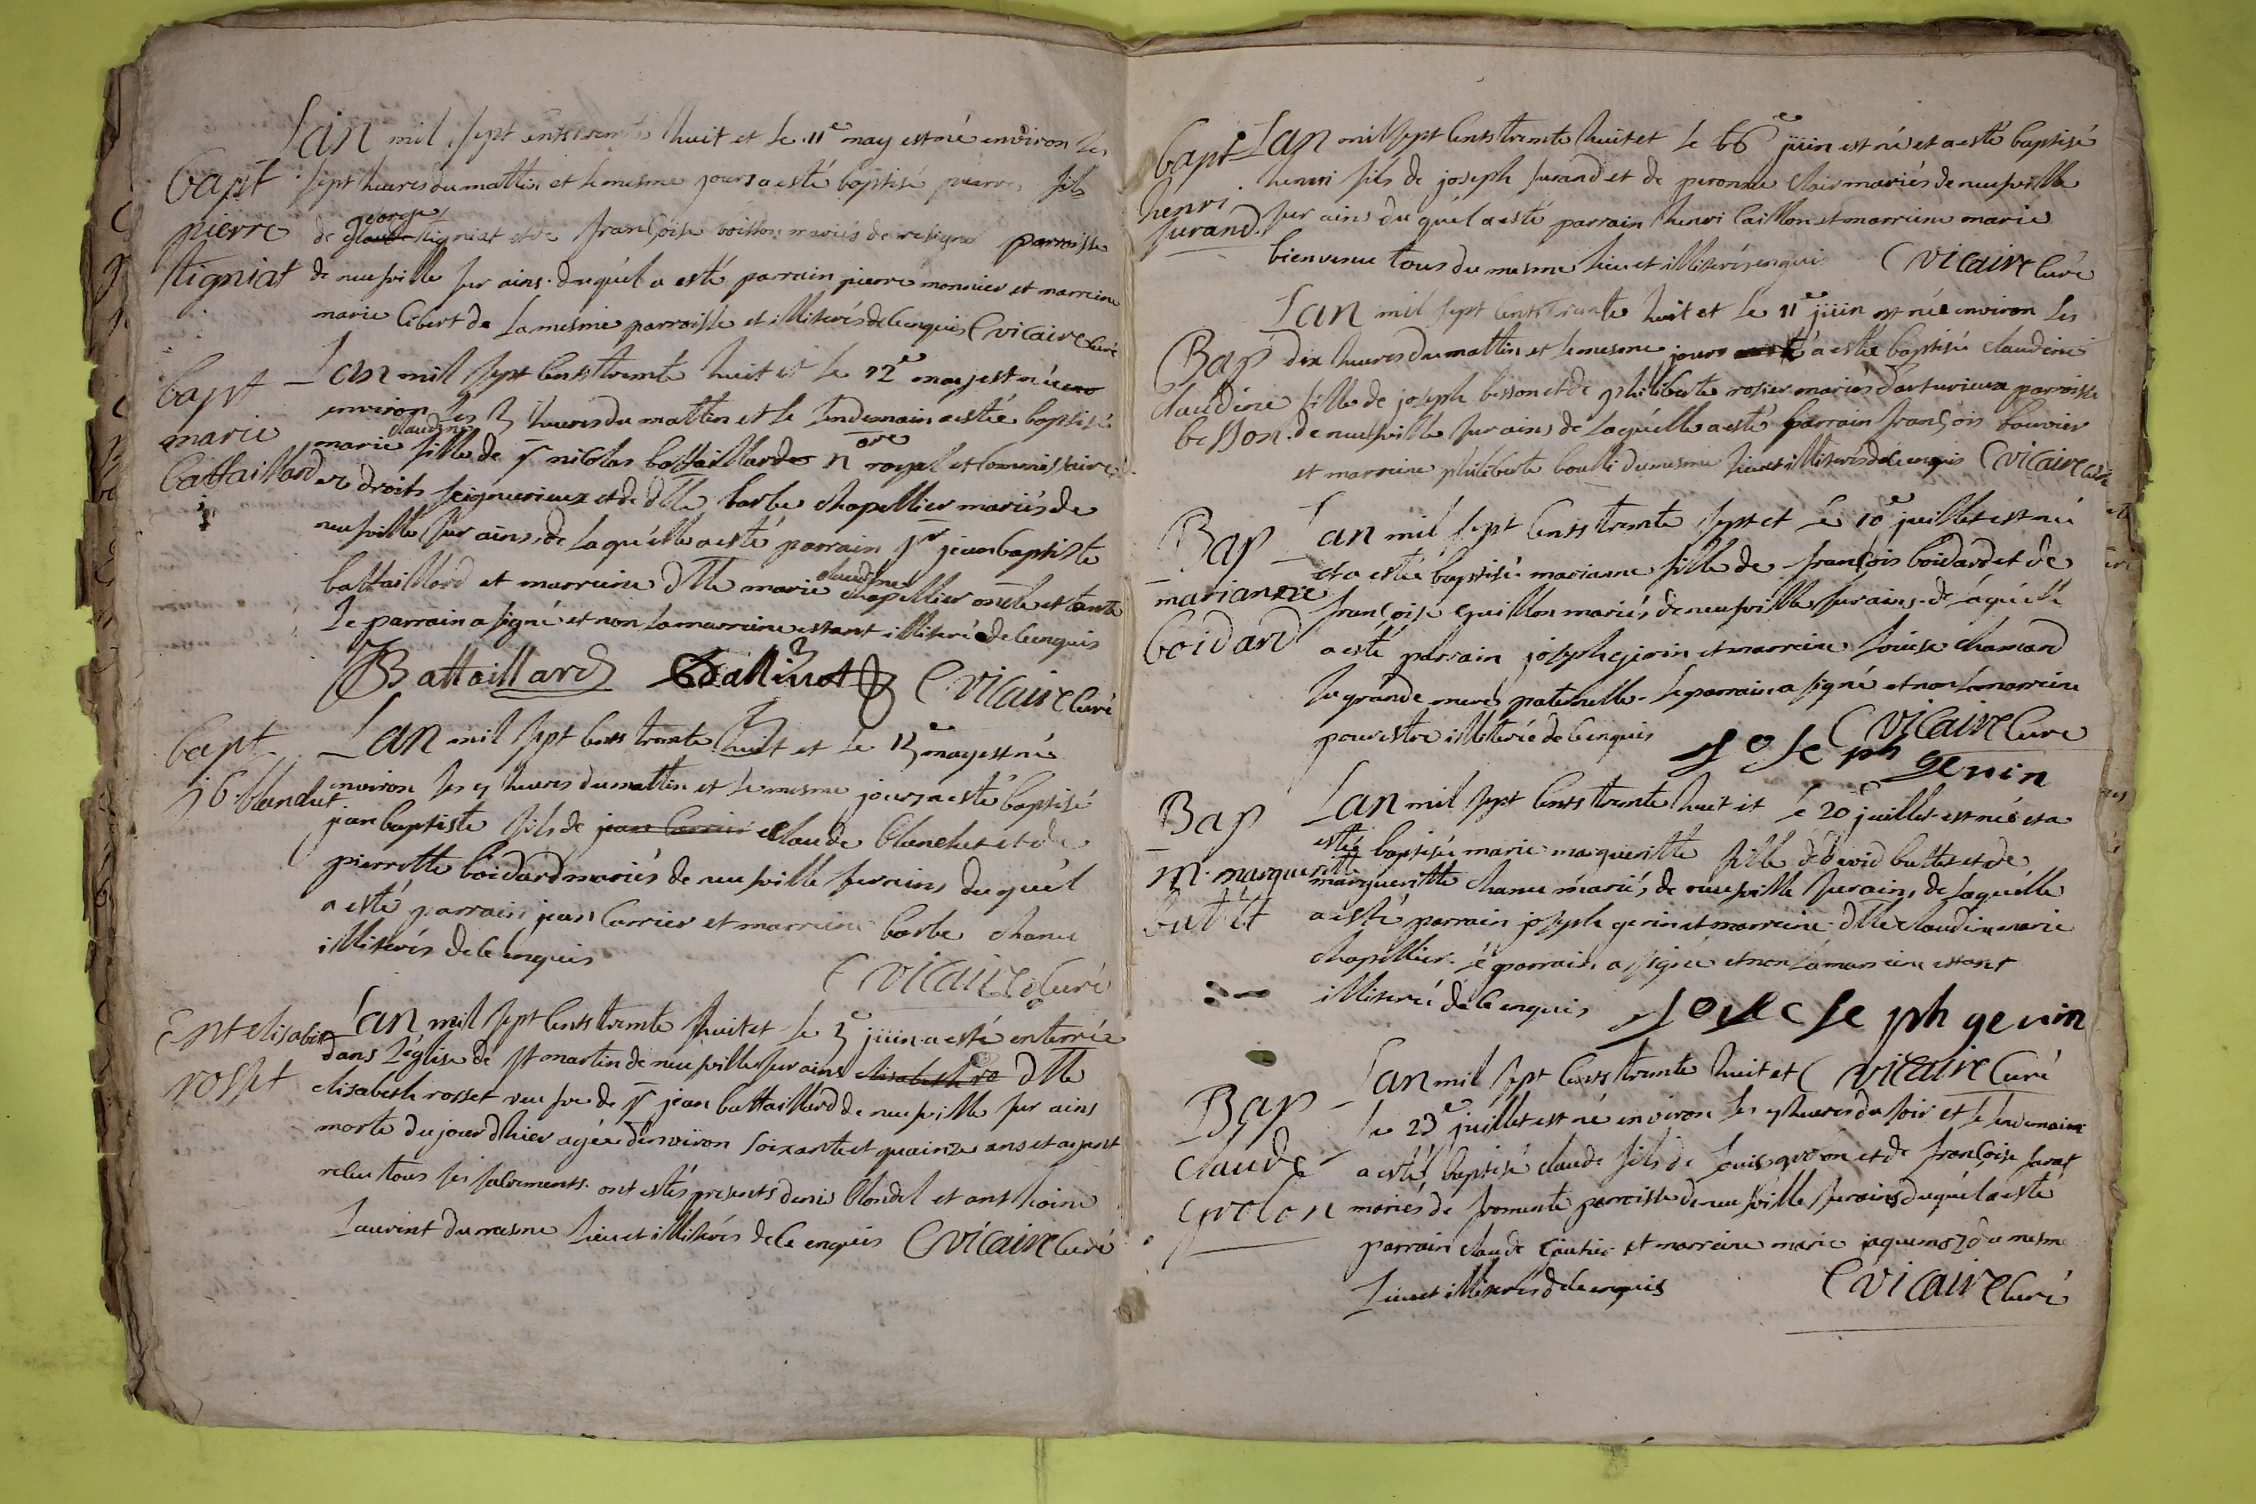 Lan mil sept cents trente huit et le 11e may est né environ les
bapt
sept heures du mattin et le mesme jours a esté baptisé pierre fils
pierre
de george claude tigniat et de françoise boisson mariés de resigneu parroisse
tigniat
de neufville sur ains duquél a esté parrain pierre monnier et marreine
marie libert de la mesme parroisse et illiterés de ce enquis C vicaire curé
bapt
Lan mil sept cents trente huit et le 12e may est née
environ les 3 heures du mattin et le lendemain a estée baptisée
marie
marie claudine fille de sr nicolas battaillard nore royal et commissaire
battaillard
ez droits seigneuriaux et de dlle barbe chapellier mariés de
neufville sur ains, de laquélle a esté parrain sr jean baptiste
battaillard et marreine dlle marie claudine chapellier oncle et tante
Le parrain a signé et non la marreine estant illiterée de ce enquis
JB Battaillard C vicaire curé
bapt
Lan mil sept cents trente huit et le 13e may est né
environ les 9 heures du mattin et le mesme jours a esté baptisé
j b blanchet
jean baptiste fils de jean carrier claude blanchet et de
pierrette boidard mariés de neufville sur ains duquél
a esté parrain jean carrier et marreine barbe chanu
illiterés de ce enquis
C vicaire curé
Ent elisabet
Lan mil sept cents trente huit et le 3e juin a esté enterrée
dans l'église de st martin de neufville sur ains elisabeth ro dlle
rosset
elisabeth rosset veufve de sr jean battaillard de neufville sur ains
morte du jour dhier agée denviron soixante et quainze ans et ayant
reçeu tous ses sacrements ont estés presents denis blondel et anthoine
Laurent du mesme lieu et illiterés de ce enquis C vicaire curé
bapt
Lan mil sept cents trente huit et le 6e juin est né et a esté baptisé
henri
henri fils de joseph jurand et de peronne clair mariés de neufville
jurand
sur ains duquél a esté parrain henri caillon et marreine marie
bienvenu tous du mesme lieu et illiterés enquis C vicaire curé
Lan mil sept cents trente huit et le 11e juin est née environ les
Bap
dix heures du mattin et le mesme jours a estée baptisée claudine
claudine
fille de joseph besson et de philiberte rosier mariés parroisse
besson
de neufville sur ains de laquélle a esté parrain françois bouvier
et marreine philiberte du mesme lieu et illiterés de ce enquis C vicaire curé
Bap
Lan mil sept cents trente sept et le 10e juillet est née
et a estée baptisée marianne fille de françois boidard et de
marianne
françoise guillon mariés de neufville sur ains de laquélle
boidard
a esté parrain joseph genin et marreine Louise chanard
sa grande mere paternelle le parrain a signé et non la marreine
pour estre illiterée de ce enquis C vicaire curé
joseph genin
Bap
Lan mil sept cents trente huit et le 20e juillet est née et a
estée baptisée marie margueritte fille de david buttet et de
m. margueritte
margueritte chanu mariés de neufville sur ains, de laquélle
buttet
a esté parrain joseph genin et marreine dlle claudine marie
chapellier. le parrain a signé et non la marreine estant
illiterée de ce enquis joseph genin
Lan mil sept cents trente huit et C vicaire curé
Bap
le 23e juillet est né environ les 9 heures du soir et le lendemain
claude
a esté baptisé claude fils de Louis grolon et de françoise
grolon
mariés de fromente parroisse de neufville sur ains duquél a esté
parrain claude gautier et marreine marie jaquemoz du mesme
Lieu et illiterés de ce enquis C vicaire curé